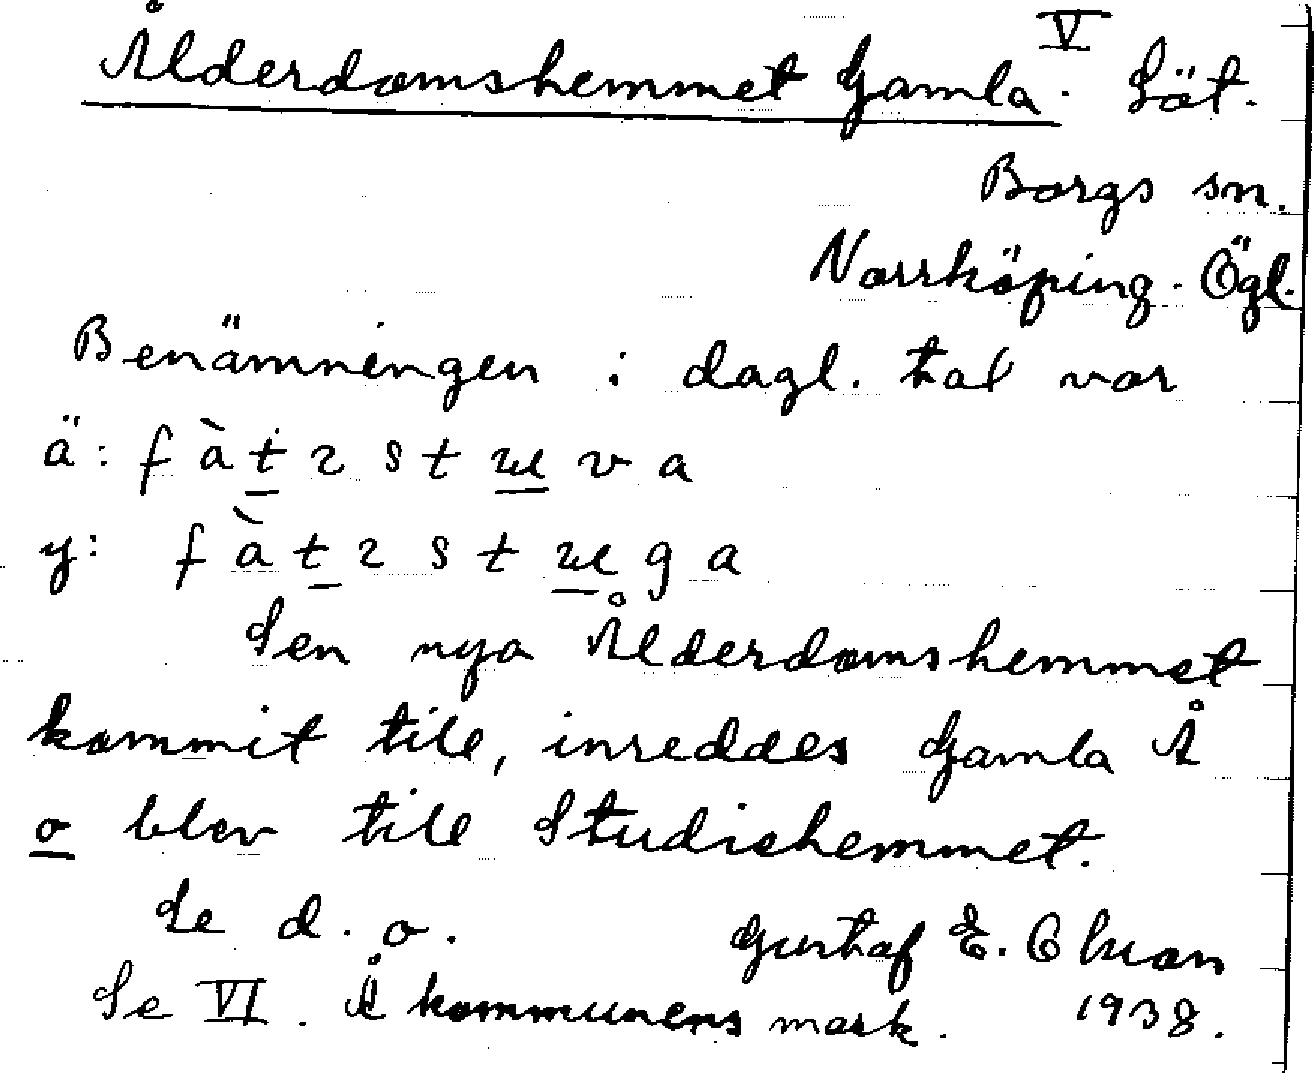 Ålderdomshemmet Gamla. V Söt.
Borgs sn.
Norrköping. Ögl.
Benämningen i dagl. tal var
ä: fàt2stuva
y: fàt2stuga
Sen nya Ålderdomshemmet
kommit till, inreddes Gamla Å
o blev till Studiehemmet.
Se d. o. Gustaf E.
Se VI. Å kommunens mark. 1938.